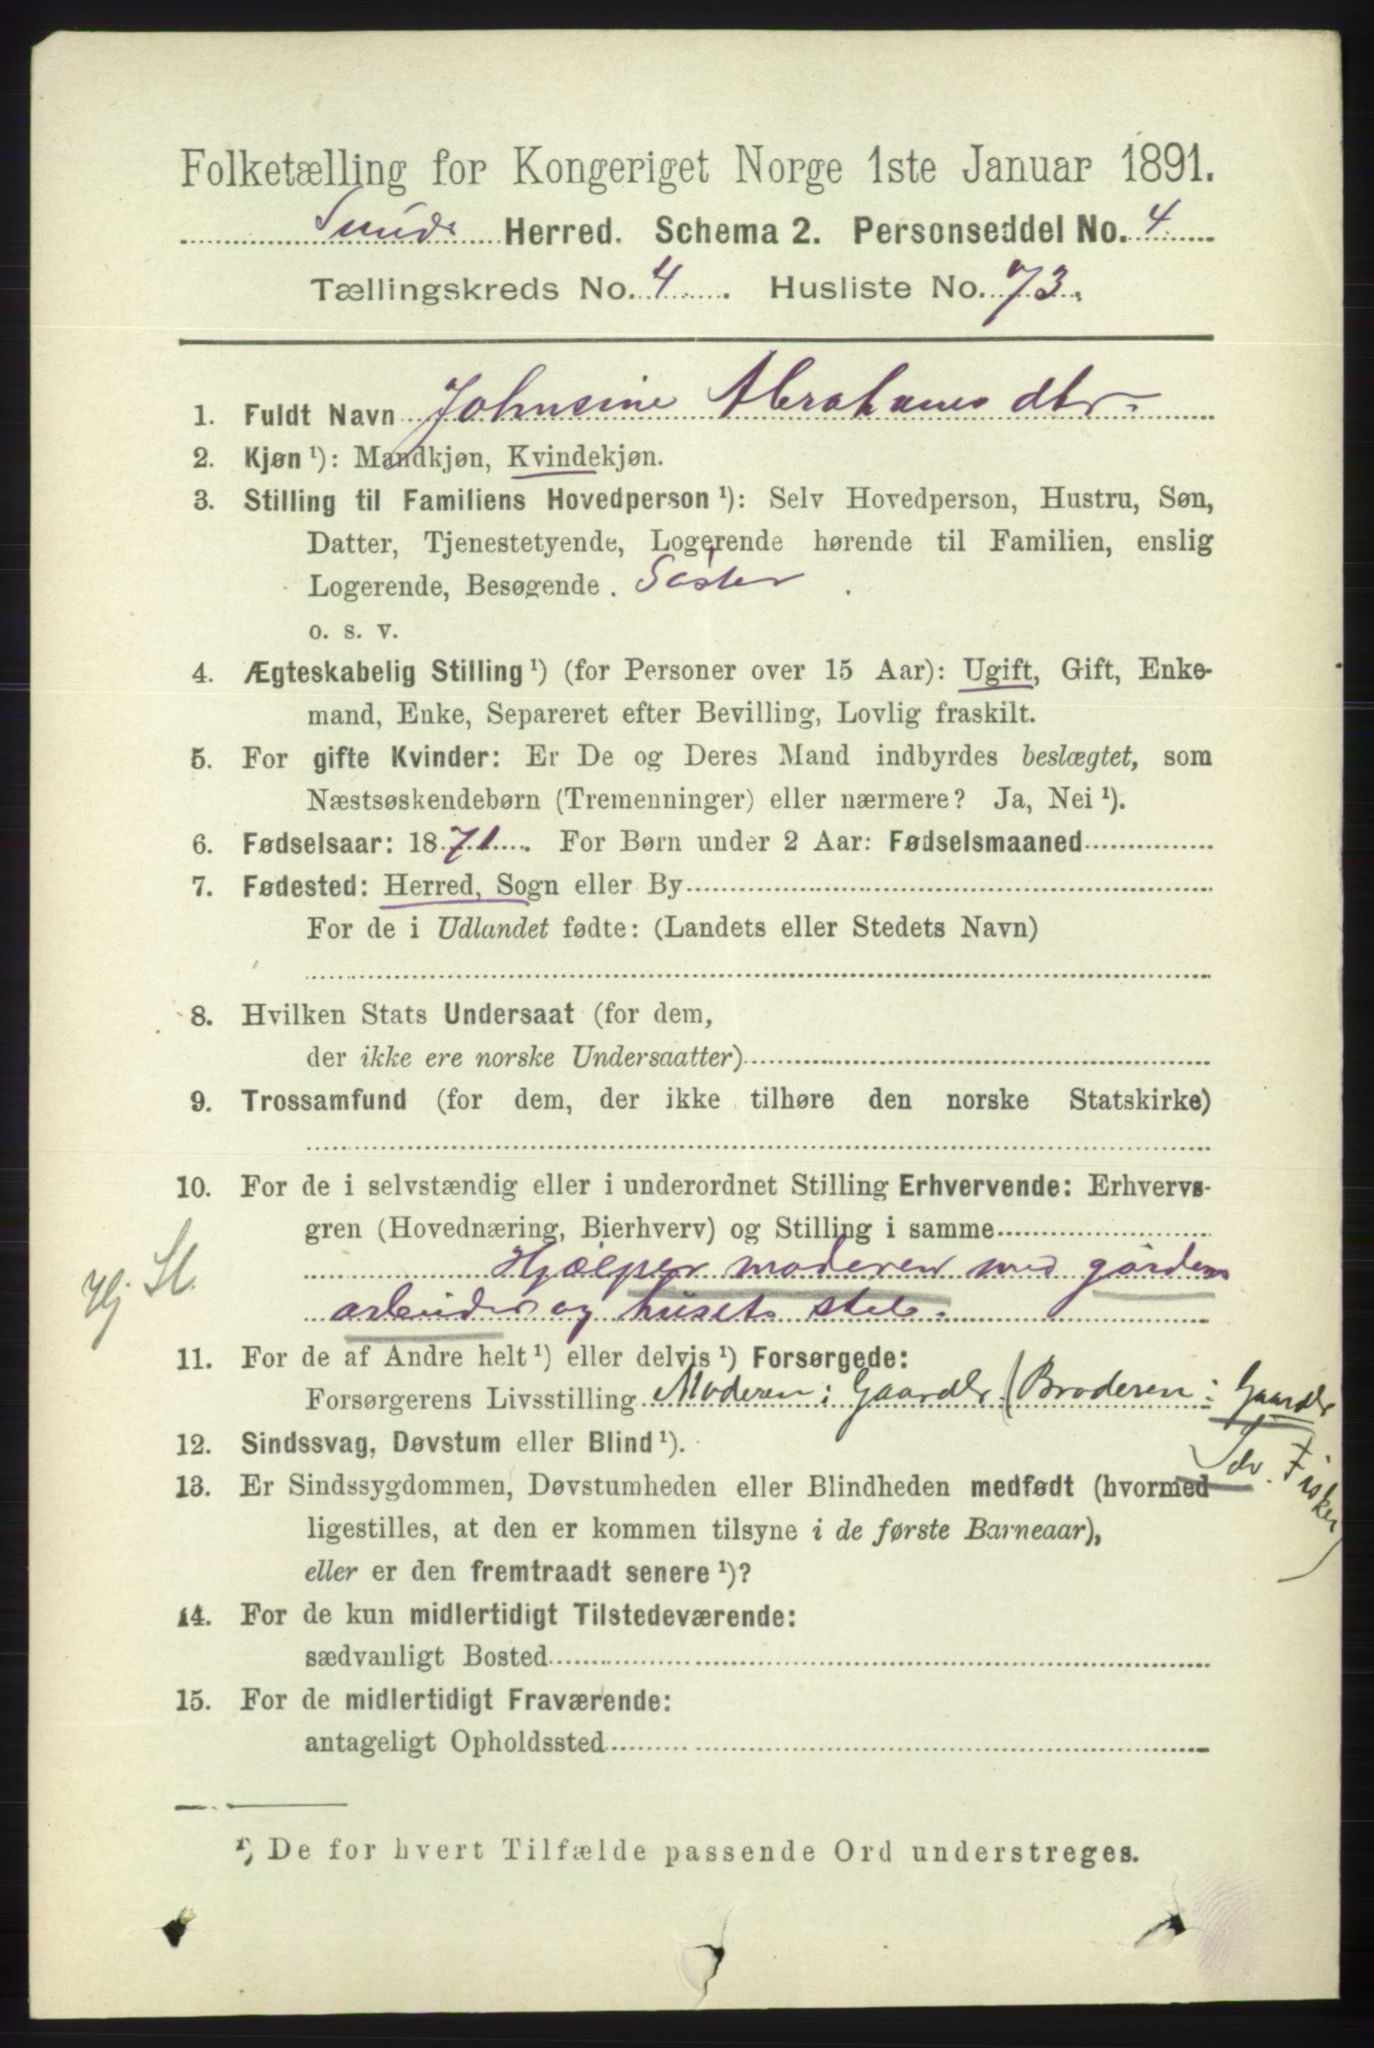 Folketælling for Kongeriget Norge 1ste Januar 1891.
Herred. Schema 2. Personseddel No. 4
Tællingskreds No. 4. Husliste No. 73.
1. Fuldt Navn Johnsine Abrahams dtr.
2. Kjøn ¹): Mandkjøn, Kvindekjøn.
3. Stilling til Familiens Hovedperson ¹): Selv Hovedperson, Hustru, Søn,
Datter, Tjenestetyende, Logerende hørende til Familien, enslig
Logerende, Besøgende. Søster
o. s. v.
4. Ægteskabelig Stilling ¹) (for Personer over 15 Aar): Ugift, Gift, Enke-
mand, Enke, Separeret efter Bevilling, Lovlig fraskilt.
5. For gifte Kvinder: Er De og Deres Mand indbyrdes beslægtet, som
Næstsøskendebørn (Tremenninger) eller nærmere? Ja, Nei ¹).
6. Fødselsaar: 1871. For Børn under 2 Aar: Fødselsmaaned
7. Fødested: Herred, Sogn eller By
For de i Udlandet fødte: (Landets eller Stedets Navn)
8. Hvilken Stats Undersaat (for dem,
der ikke ere norske Undersaatter)
9. Trossamfund (for dem, der ikke tilhøre den norske Statskirke)
10. For de i selvstændig eller i underordnet Stilling Erhvervende: Erhvervs-
gren (Hovednæring, Bierhverv) og Stilling i samme
Hjælper moderen med gårdens
Hj. St.
arbeider og husets stel.
11. For de af Andre helt ¹) eller delvis ¹) Forsørgede:
Forsørgerens Livsstilling Moderen: Gaardbr (Broderen: Gaardbr
Selv. Fisker)
12. Sindssvag, Døvstum eller Blind ¹).
13. Er Sindssygdommen, Døvstumheden eller Blindheden medfødt (hvormed
ligestilles, at den er kommen tilsyne i de første Barneaar),
eller er den fremtraadt senere ¹)?
14. For de kun midlertidigt Tilstedeværende:
sædvanligt Bosted
15. For de midlertidigt Fraværende:
antageligt Opholdssted
¹) De for hvert Tilfælde passende Ord understreges.